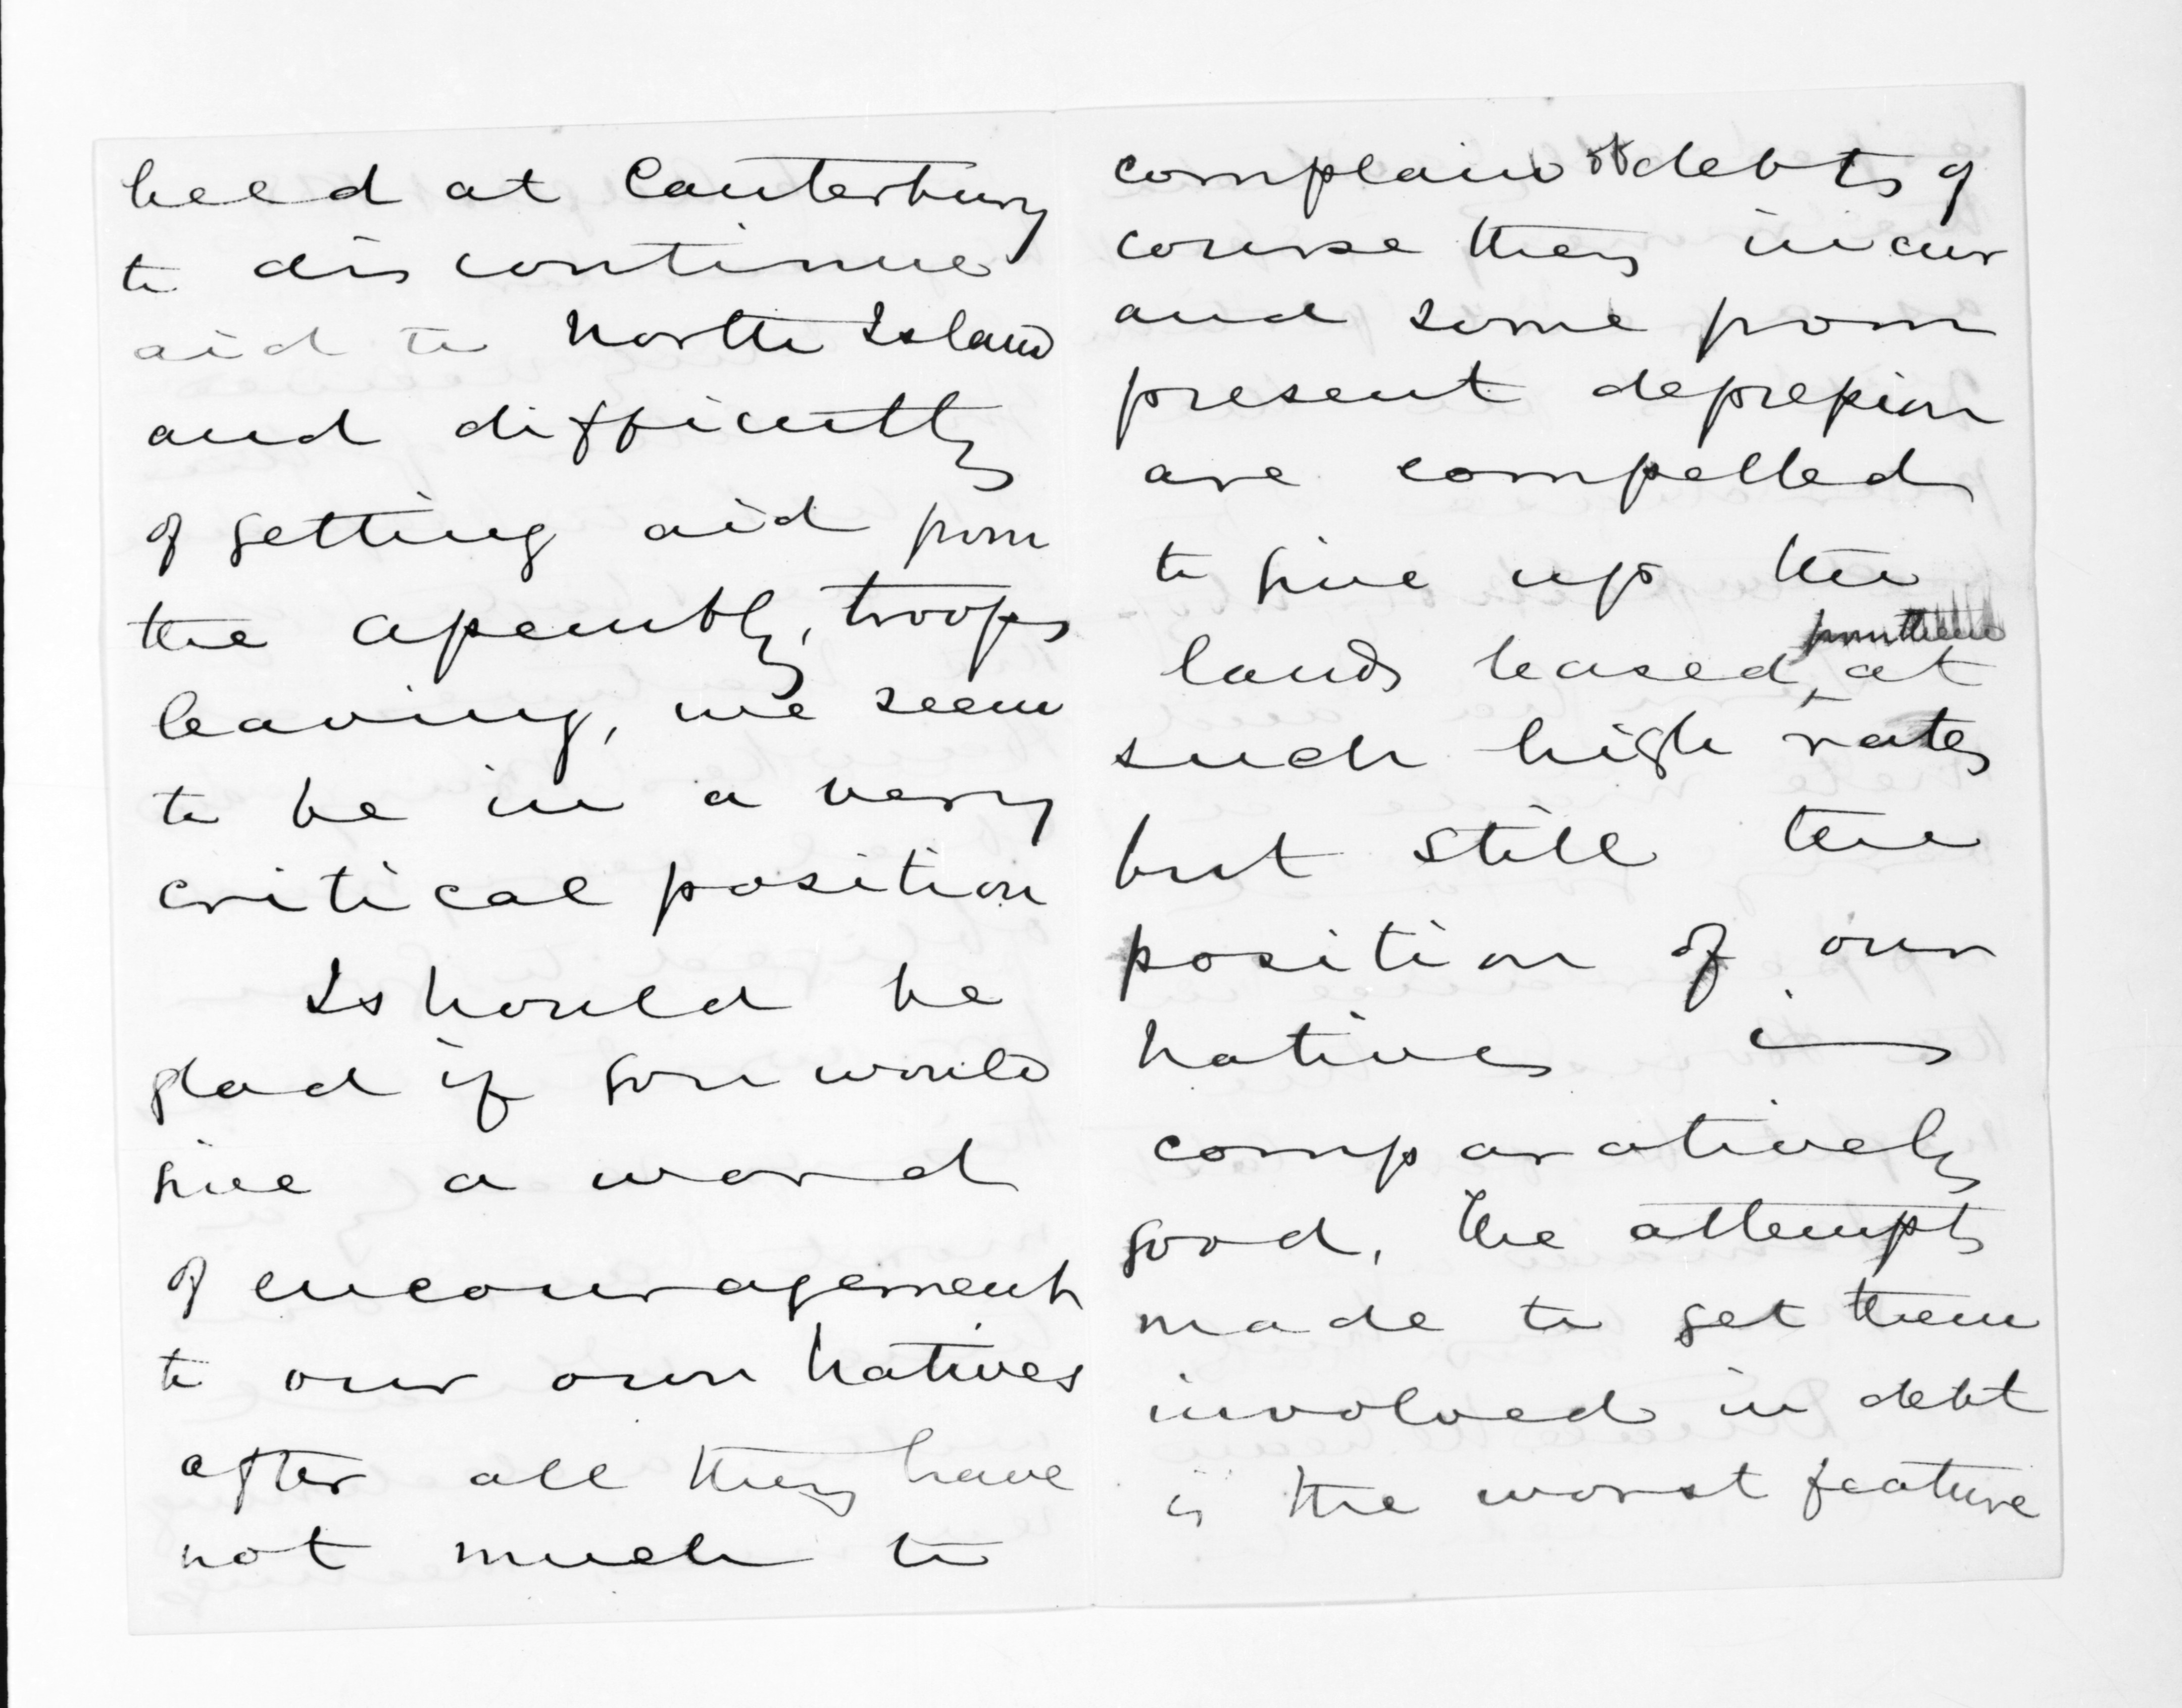 held at Canterbury
to discontinue
aid to North Island
and difficulty
of getting aid from
the Assembly, troops
leaving, we seem
to be in a very
critical position
I should be
glad if you would
give a word
of encouragement
to our own natives
after all they have
not much to
complain of debts of
course they incur
and some from
present depression
are compelled
to give up the
from them
lands leased, at
such high rates
but still the
position of our
natives is
comparatively
good, the attempts
made to get them
involved in debt
is the worst feature